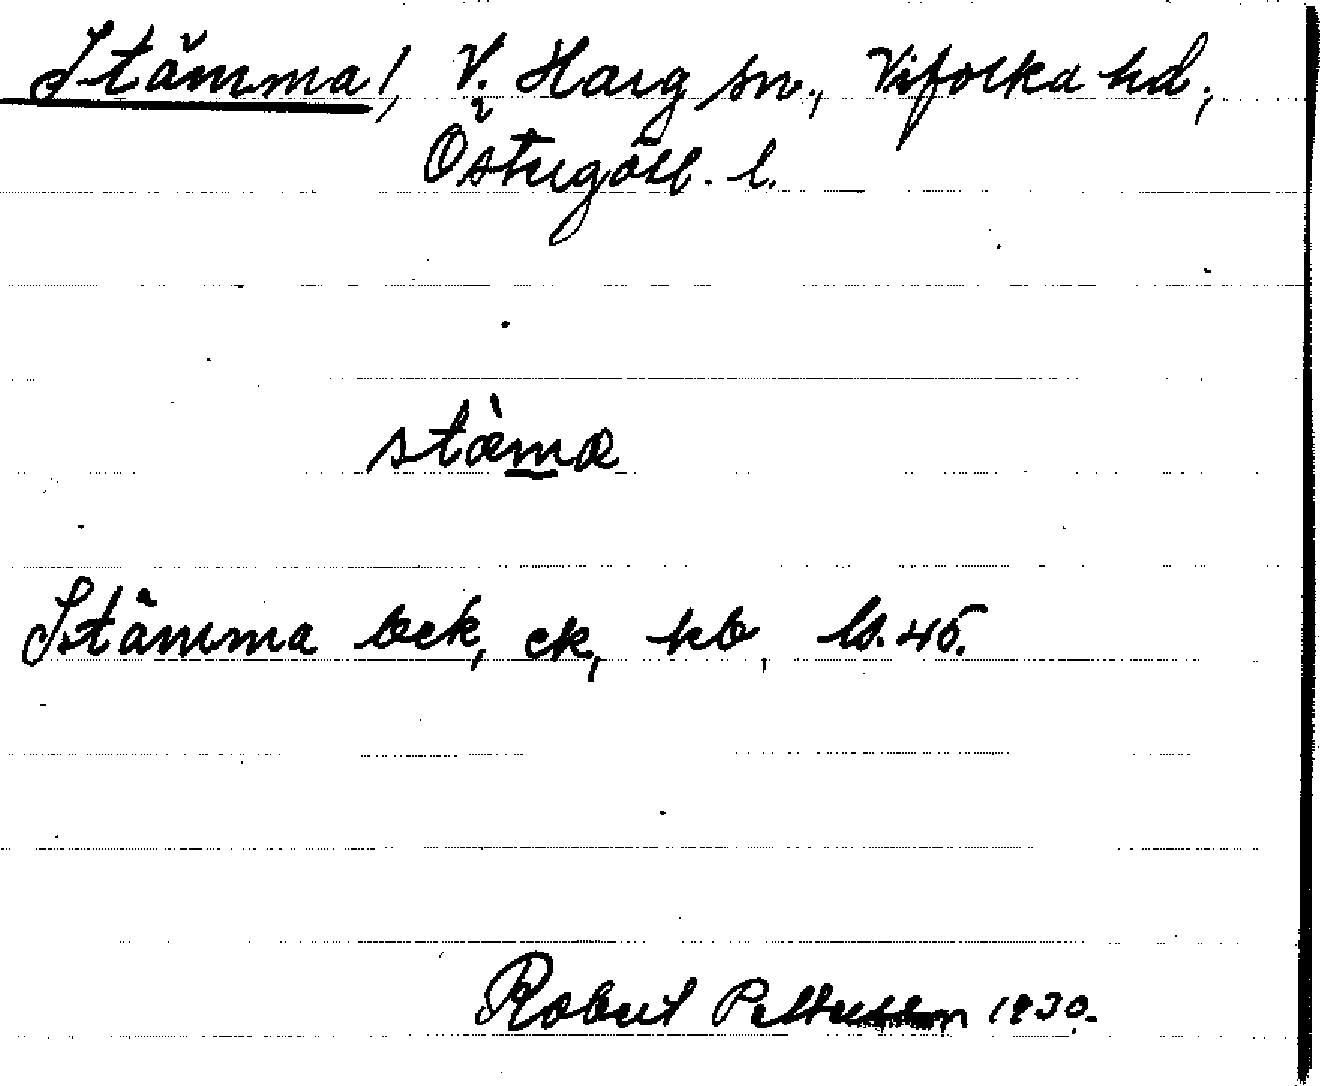 Stämma!, V. Harg sn., Vifolka hd.,
Östergötl. l.
stæ̀ma
Stämma bck, ck, kb, bl. 45.
Robert Pettersson 1930.